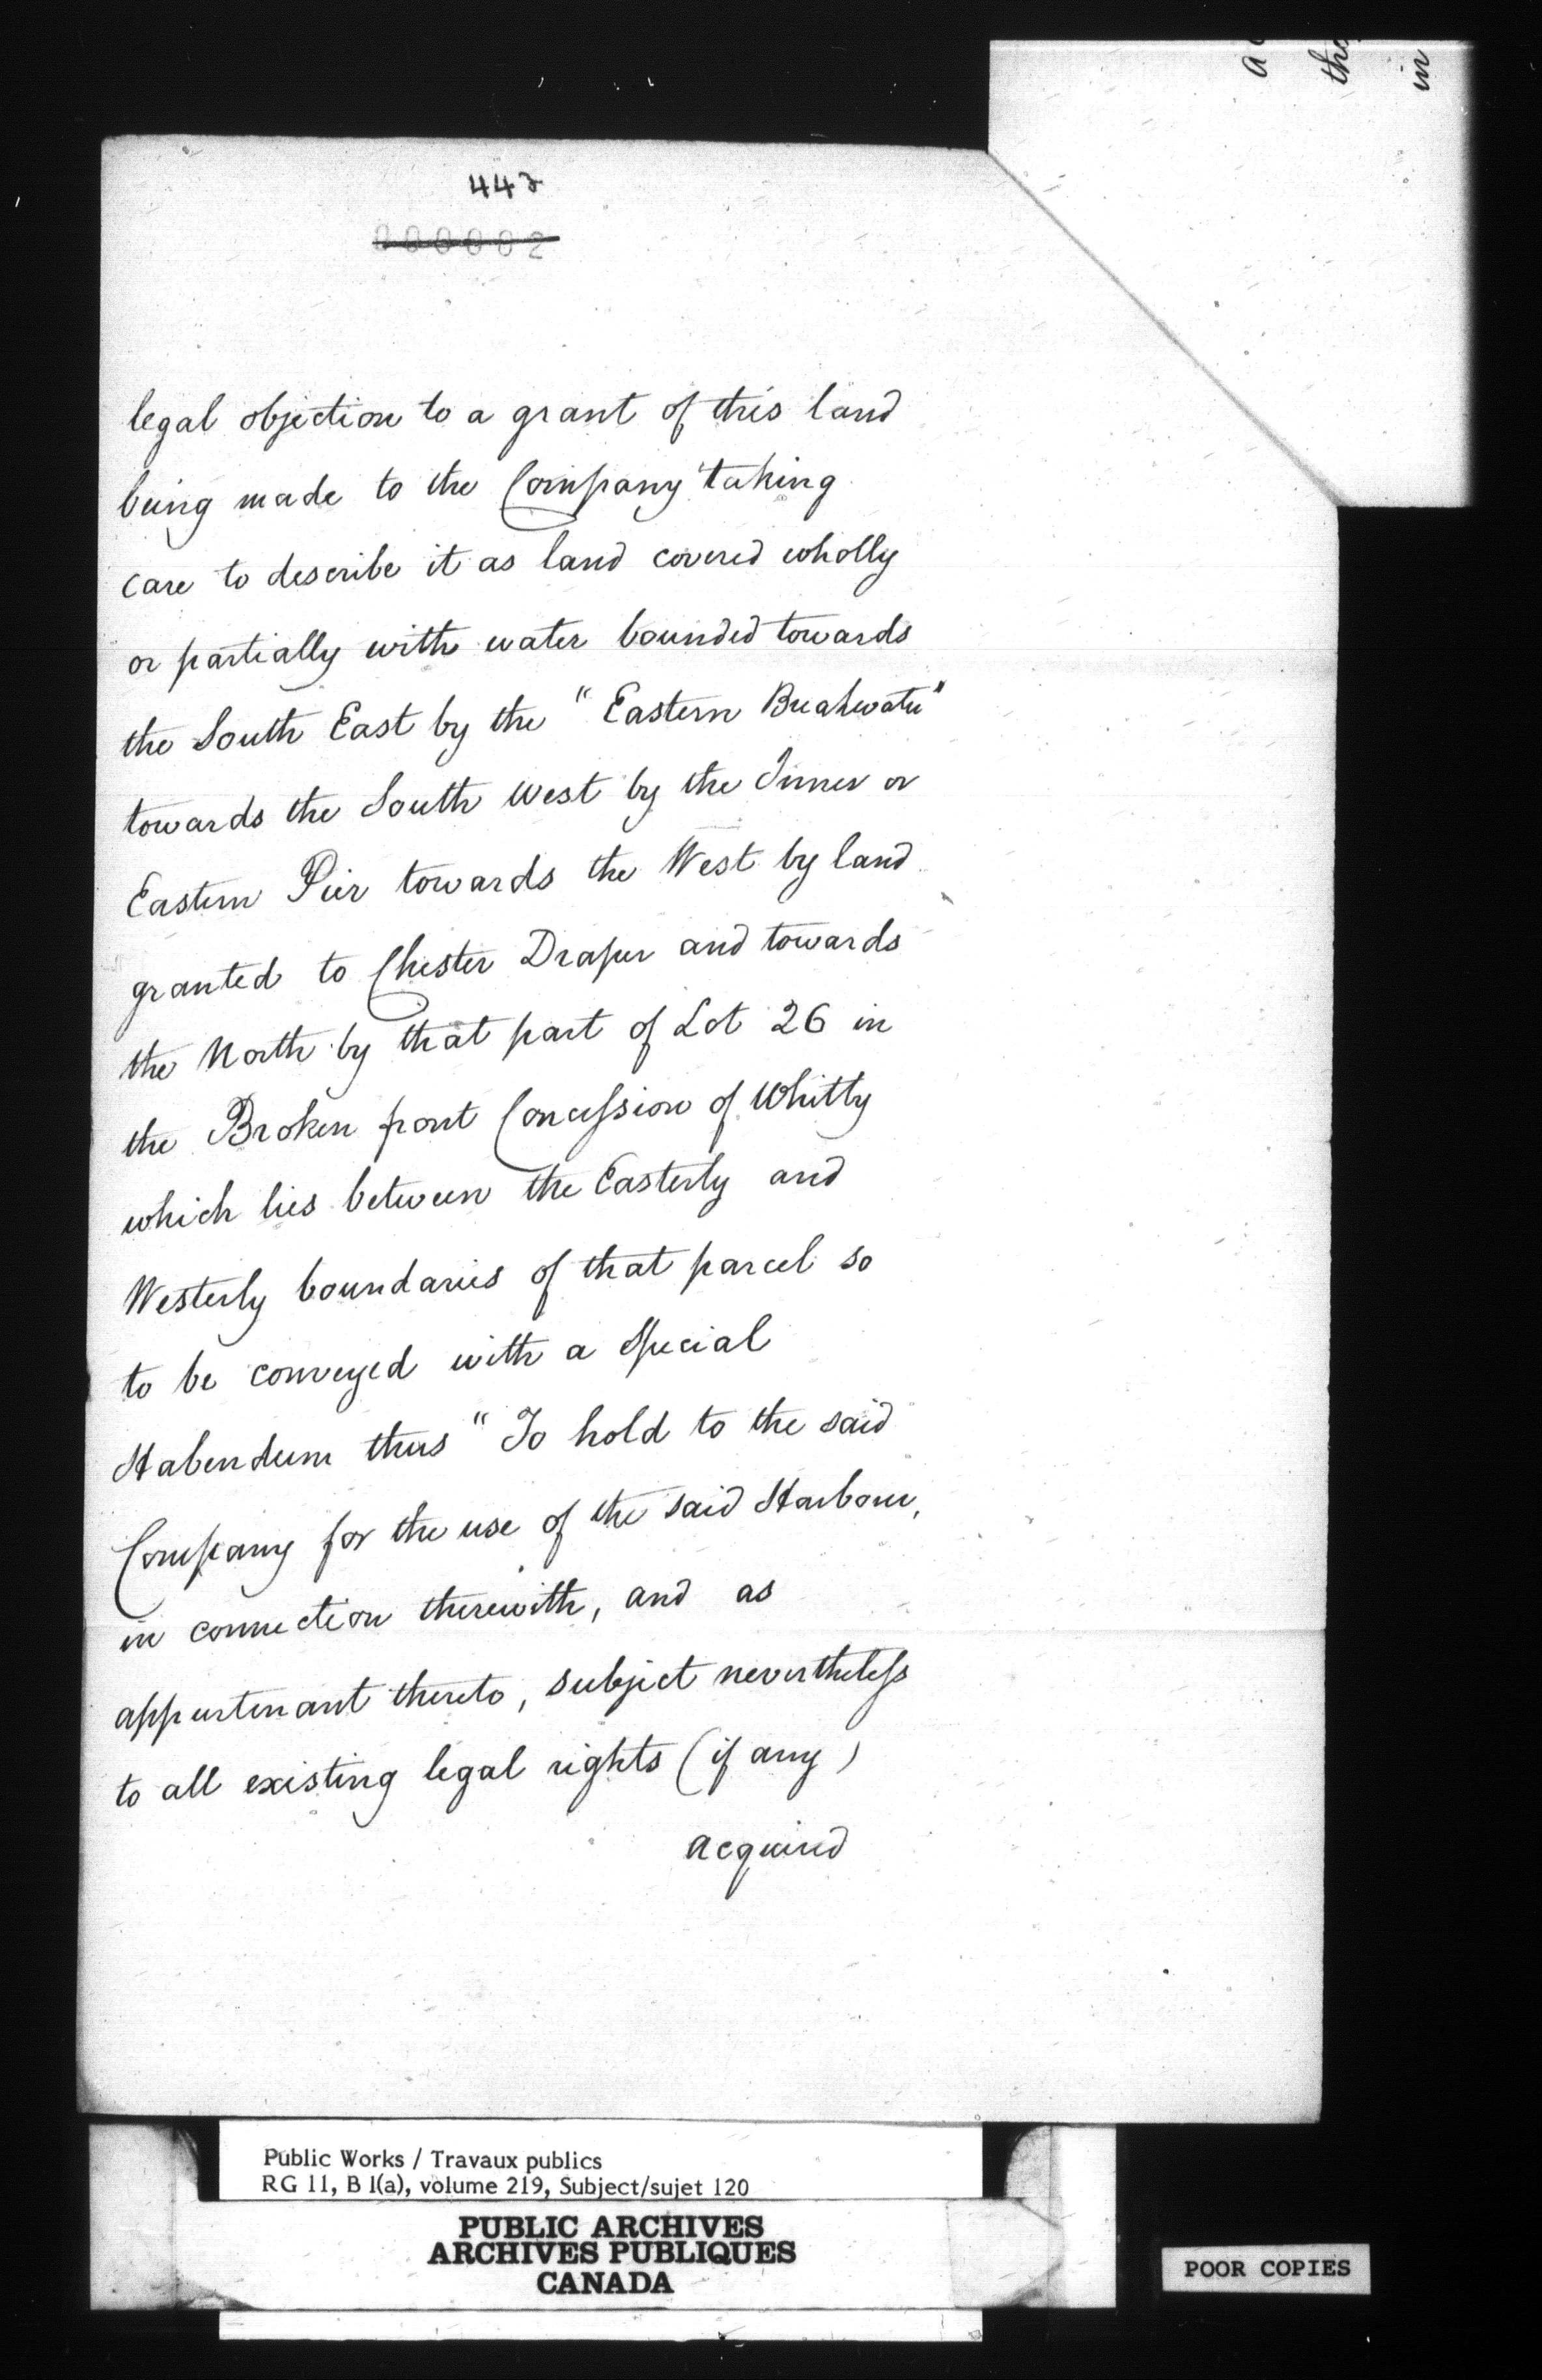 a
tho
in
443
000002
legal objection to a grant of this land
being made to the Company taking
care to describe it as land covered wholly
or partially with water bounded towards
the South East by the "Eastern Breakwater"
towards the South West by the Inner or
Eastern Pier towards the West by land
granted to Chester Draper and towards
the North by that part of Lot 26 in
the Broken front Concession of Whitby
which lies between the Easterly and
Westerly boundaries of that parcel so
to be conveyed with a Special
Habendum thus "To hold to the said
Company for the use of the said Harbour,
in connection therewith, and as
appurtenant thereto, subject nevertheless
to all existing legal rights (if any)
acquired
Public Works / Travaux publics
RG 11, B 1(a), volume 219, Subject/sujet 120
PUBLIC ARCHIVES
ARCHIVES PUBLIQUES
CANADA
POOR COPIES